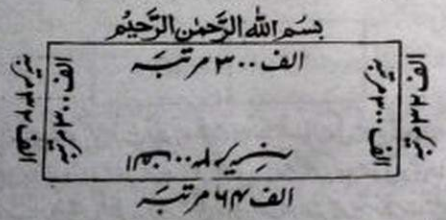 بسم الله الرحمن الرحيم
الف ۳۰۰ مرتبہ
الف ۳۲ مرتبہ
الف ۳۰۰ مرتبہ
الف ۳۰۰ مرتبہ
الف ۳۲ مرتبہ
الف ۶۴ مرتبہ